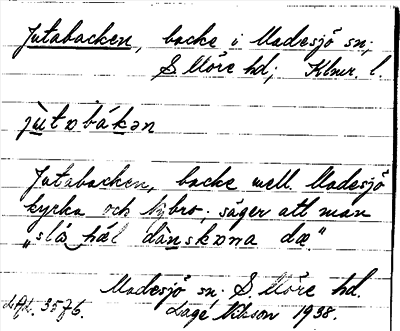 Jutabacken, backe i Madesjö sn;
S Möre hd; Klmr. l.
jùtɒbákən
Jutabacken, backe mell. Madesjö
kyrka och Nybro; säger att man
„slå häl dànskɒna dæ“
Madesjö sn; S Möre hd.
Lage Nilsson 1938.